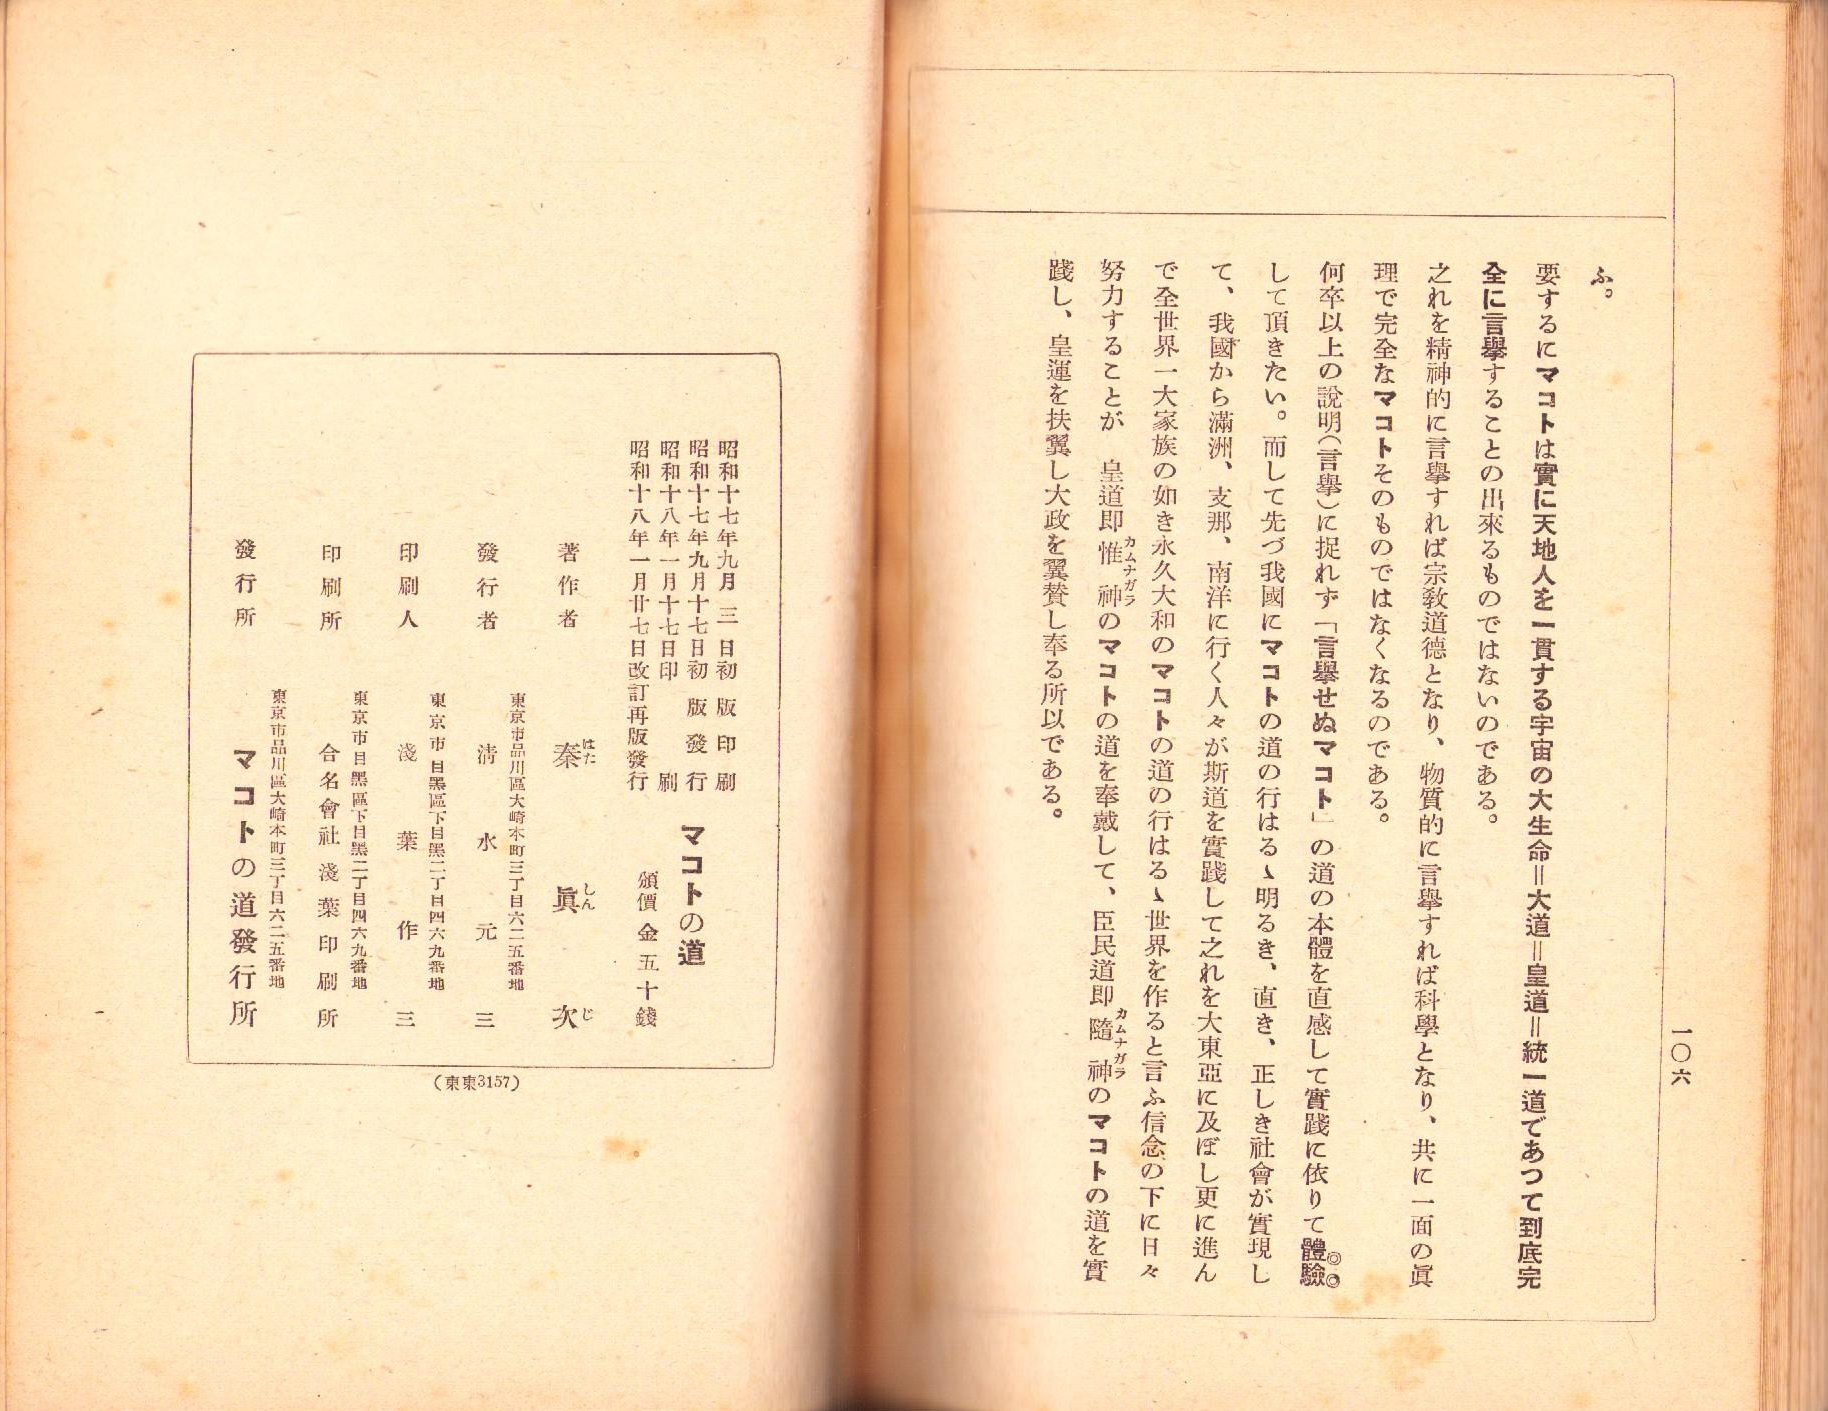 一〇六
ふ。
要するにマコトは實に天地人を一貫する宇宙の大生命＝大道＝皇道＝統一道であつて到底完
全に言擧することの出來るものではないのである。
之れを精神的に言擧すれば宗敎道德となり、物質的に言擧すれば科學となり、共に一面の眞
理で完全なマコトそのものではなくなるのである。
何卒以上の說明（言擧）に捉れず「言擧せぬマコト」の道の本體を直感して實踐に依りて體驗
して頂きたい。而して先づ我國にマコトの道の行はるゝ明るき、直き、正しき社會が實現し
て、我國から滿洲、支那、南洋に行く人々が斯道を實踐して之れを大東亞に及ぼし更に進ん
で全世界一大家族の如き永久大和のマコトの道の行はるゝ世界を作ると言ふ信念の下に日々
努力することが　皇道即惟神カムナガラのマコトの道を奉戴して、臣民道即隨神カムナガラのマコトの道を實
踐し、皇運を扶翼し大政を翼賛し奉る所以である。
昭和十七年九月三日初版印刷
昭和十七年九月十七日初版發行
昭和十八年一月十七日印刷
昭和十八年一月廿七日改訂再版發行
マコトの道
頒價金五十錢
著作者　秦はた眞しん次じ
東京市品川區大崎本町三丁目六二五番地
發行者　淸水元三
東京市目黑區下目黑二丁目四六九番地
印刷人　淺葉作三
東京市目黑區下目黑二丁目四六九番地
印刷所　合名會社淺葉印刷所
東京市品川區大崎本町三丁目六二五番地
發行所　マコトの道發行所
（東東3157）